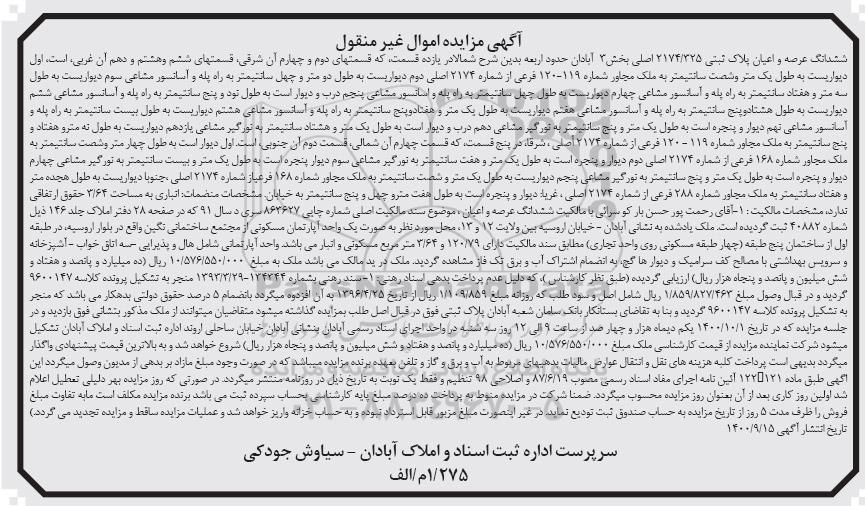 آگهی مزایده اموال غیر منقول
ششدانگ عرصه و اعیان پلاک ثبتی ۲۱۷۴/۳۲۵ اصلی بخش۳ آبادان حدود اربعه بدین شرح شمالادر یازده قسمت، که قسمتهای دوم و چهارم آن شرقی، قسمتهای ششم وهشتم و دهم آن غربی، است، اول
دیواریست به طول یک متر وشصت سانتیمتر به ملک مجاور شماره ۱۱۹-۱۲۰ فرعی از شماره ۲۱۷۴ اصلی دوم دیواریست به طول دو متر و چهل سانتیمتر به راه پله و آسانسور مشاعی سوم دیواریست به طول
سه متر و هفتاد سانتیمتر به راه پله و آسانسور مشاعی چهارم دیواریست به طول چهل سانتیمتر به راه پله و آسانسور مشاعی پنجم درب و دیوار است به طول نود و پنج سانتیمتر به راه پله و آسانسور مشاعی ششم
دیواریست به طول هشتادوپنج سانتیمتر به راه پله و آسانسور مشاعی هفتم دیواریست به طول یک متر و هفتادوپنج سانتیمتر به راه پله و آسانسور مشاعی هشتم دیواریست به طول بیست سانتیمتر به راه پله و
آسانسور مشاعی نهم دیوار و پنجره است به طول یک متر و پنج سانتیمتر به نورگیر مشاعی دهم درب و دیوار است به طول یک متر و هشتاد سانتیمتر به نورگیر مشاعی یازدهم دیواریست به طول نه مترو هفتاد و
پنج سانتیمتر به ملک مجاور شماره ۱۱۹ - ۱۲۰ فرعی از شماره ۲۱۷۴ اصلی ، شرقا، در پنج قسمت، که قسمت چهارم آن شمالی، قسمت دوم آن جنوبی، است. اول دیوار است به طول چهار متر وشصت سانتیمتر به
ملک مجاور شماره ۱۶۸ فرعی از شماره ۲۱۷۴ اصلی دوم دیوار و پنجره است به طول یک متر و هفت سانتیمتر به نورگیر مشاعی سوم دیوار پنجره است به طول یک متر و بیست سانتیمتر به نورگیر مشاعی چهارم
دیوار و پنجره است به طول یک متر و پنج سانتیمتر به نورگیر مشاعی پنجم دیواریست به طول یک متر و شصت سانتیمتر به ملک مجاور شماره ۱۶۸ فرعیاز شماره ۲۱۷۴ اصلی ،جنوبا دیواریست به طول هجده متر
و هفتاد سانتیمتر به ملک مجاور شماره ۲۸۸ فرعی از شماره ۲۱۷۴ اصلی ، غربا: دیوار و پنجره است به طول هفت مترو چهل و پنج سانتیمتر به خیابان. مشخصات منضمات: انباری به مساحت ۳/۶۴ حقوق ارتفاقی
ندارد، مشخصات مالکیت : ۱-آقای رحمت پور حسن بار کو سرائی با مالکیت ششدانگ عرصه و اعیان ، موضوع سند مالکیت اصلی شماره چاپی ۸۶۳۶۲۷ سری د سال ۹۱ که در صفحه ۲۸ دفتر املاک جلد ۱۴۶ ذیل
شماره ۴۰۸۸۲ ثبت گردیده است. ملک یادشده به نشانی آبادان - خیابان اروسیه بین ولایت ۱۲ و ۱۳، محل مورد نظر به صورت یک واحد آپارتمان مسکونی از مجتمع ساختمانی نگین واقع در بلوار اروسیه، در طبقه
اول از ساختمان پنج طبقه (چهار طبقه مسکونی روی واحد تجاری) مطابق سند مالکیت دارای ۱۲۰/۷۹ و ۳/۶۴ متر مربع مسکونی و انبار می باشد. واحد آپارتمانی شامل هال و پذیرایی -سه اتاق خواب - آشپزخانه
و سرویس بهداشتی با مصالح کف سرامیک و دیوار ها گچ، به انضمام اشتراک آب و برق تک فاز مشاهده گردید. ملک در ید مالک می باشد ملک به مبلغ ۱۰/۵۷۶/۵۵۰/۰۰۰ ریال (ده میلیارد و پانصد و هفتاد و
شش میلیون و پانصد و پنجاه هزار ریال) ارزیابی گردیده (طبق نظر کارشناس )، که دلیل عدم پرداخت بدهی اسناد رهنی: ۱-سند رهنی بشماره ۱۲۴۳۴۴-۱۳۹۳/۳/۲۹ منجر به تشکیل پرونده کلاسه ۹۶۰۰۱۴۷
گردید و در قبال وصول مبلغ ۱/۸۵۹/۸۲۷/۴۶۳ ریال شامل اصل و سود طلب که روزانه مبلغ ۱/۱۰۹/۸۵۹ ریال از تاریخ ۱۳۹۶/۴/۲۵ به آن افزوده میگردد بانضمام ۵ درصد حقوق دولتی بدهکار می باشد که منجر
به تشکیل پرونده کلاسه ۹۶۰۰۱۴۷ گردید و بنا به تقاضای بستانکار بانک سامان شعبه آبادان پلاک ثبتی فوق در قبال اصل طلب بمزایده گذاشته میشود متقاضیان میتوانند از ملک مذکور بنشانی فوق بازدید و در
جلسه مزایده که در تاریخ ۱۴۰۰/۱۰/۱ یکم دیماه هزار و چهار صد از ساعت ۹ الی ۱۲ روز سه شنبه در واحد اجرای اسناد رسمی آبادان بنشانی آبادان خیابان ساحلی اروند اداره ثبت اسناد و املاک آبادان تشکیل
میشود شرکت نمایند مزایده از قیمت کارشناسی ملک مبلغ ۱۰/۵۷۶/۵۵۰/۰۰۰ ریال (ده میلیارد و پانصد و هفتاد و شش میلیون و پانصد و پنجاه هزار ریال) شروع خواهد شد و به بالاترین قیمت پیشنهادی واگذار
میگردد بدیهی است پرداخت کلیه هزینه های نقل و انتقال عوارض مالیات بدهیهای مربوط به آب و برق و گاز و تلفن بعهده برنده مزایده میباشد که در صورت وجود مبلغ مازاد بر بدهی از مدیون وصول میگردد این
آگهی طبق ماده ۱۲۱و۱۲۲ آئین نامه اجرای مفاد اسناد رسمی مصوب ۸۷/۶/۱۹ و اصلاحی ۹۸ تنظیم و فقط یک نوبت به تاریخ ذیل در روزنامه منتشر میگردد. در صورتی که روز مزایده بهر دلیلی تعطیل اعلام
شد اولین روز کاری بعد از آن بعنوان روز مزایده محسوب میگردد. ضمنا شرکت در مزایده منوط به پرداخت ده درصد مبلغ پایه کارشناسی بحساب سپرده ثبت می باشد برنده مزایده مکلف است مابه تفاوت مبلغ
فروش را ظرف مدت ۵ روز از تاریخ مزایده به حساب صندوق ثبت تودیع نماید. در غیر اینصورت مبلغ مزبور قابل استرداد نبوده و به حساب خزانه واریز خواهد شد و عملیات مزایده ساقط و مزایده تجدید می گردد.)
تاریخ انتشار آگهی ۱۴۰۰/۹/۱۵
سرپرست اداره ثبت اسناد و املاک آبادان - سیاوش جودکی
۱/۲۷۵/م/الف